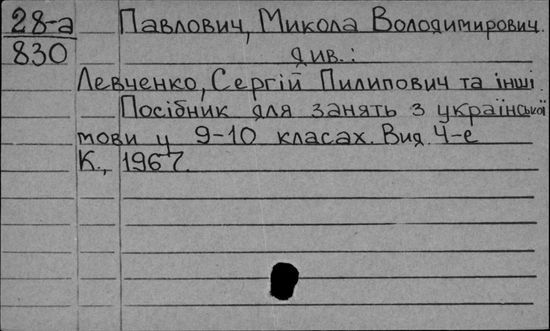 28-а Павлович, Микола Володимирович.
830 див.:
Левченко, Сергій Пилипович та інші.
Посібник для занять з української
мови у 9-10 класах. Вид. 4-е
К., 1967.